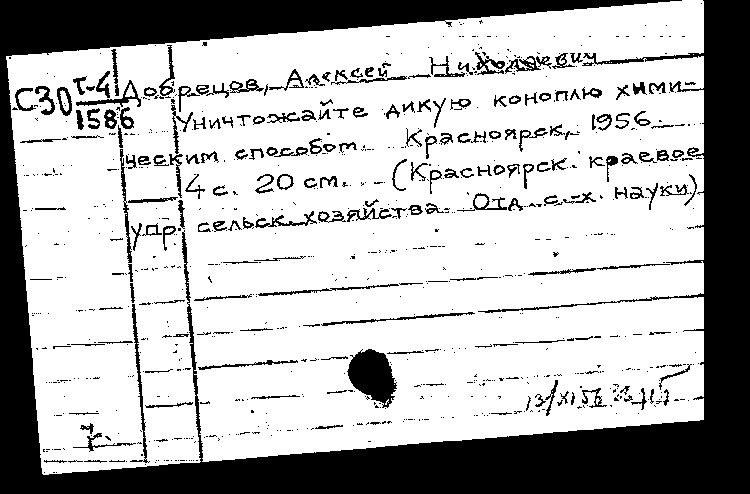 С30 Т-4/1586 Добрецов, Алексей Николаевич
Уничтожайте дикую коноплю хими-
ческим способом. Красноярск, 1956.
4 с. 20 см. (Красноярск. краевое
упр. сельск. хозяйства. Отд. с.-х. науки)
13/XI 56